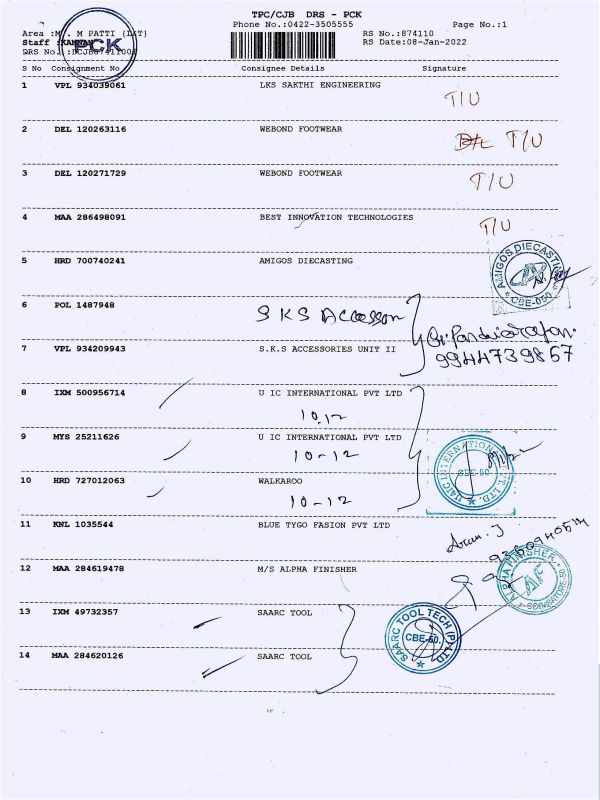 TPC/CJB DRS - PCK
Phone No.:0422-3505555 Page No.:1
Area : M PATTI RS No.:874110
Staff : RS Date:08-Jan-2022
DRS No.
PCK
S No Consignment No Consignee Details Signature
1 VPL 934039061 LKS SAKTHI ENGINEERING
T/U
2 DEL 120263116 WEBOND FOOTWEAR
T/U
3 DEL 120271729 WEBOND FOOTWEAR
T/U
4 MAA 286498091 BEST INNOVATION TECHNOLOGIES
T/U
5 HRD 700740241 AMIGOS DIECASTING
AMIGOS DIECASTING
CBE-050
6 POL 1487948
S K S Accesson
7 VPL 934209943 S.K.S ACCESSORIES UNIT II
9944739867
8 IXM 500956714 U IC INTERNATIONAL PVT LTD
10.12
9 MYS 25211626 U IC INTERNATIONAL PVT LTD
10-12
10 HRD 727012063 WALKAROO
10-12
11 KNL 1035544 BLUE TYGO FASION PVT LTD
Arun. J
12 MAA 284619478 M/S ALPHA FINISHER
ALPHA FINISHER
AF
13 IXM 49732357 SAARC TOOL
SAARC TOOL TECH (P) LTD
CBE-60.
14 MAA 284620126 SAARC TOOL